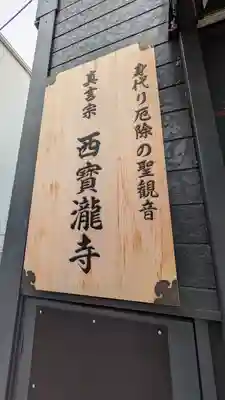 身代り厄除の聖観音
真言宗
西寳瀧寺